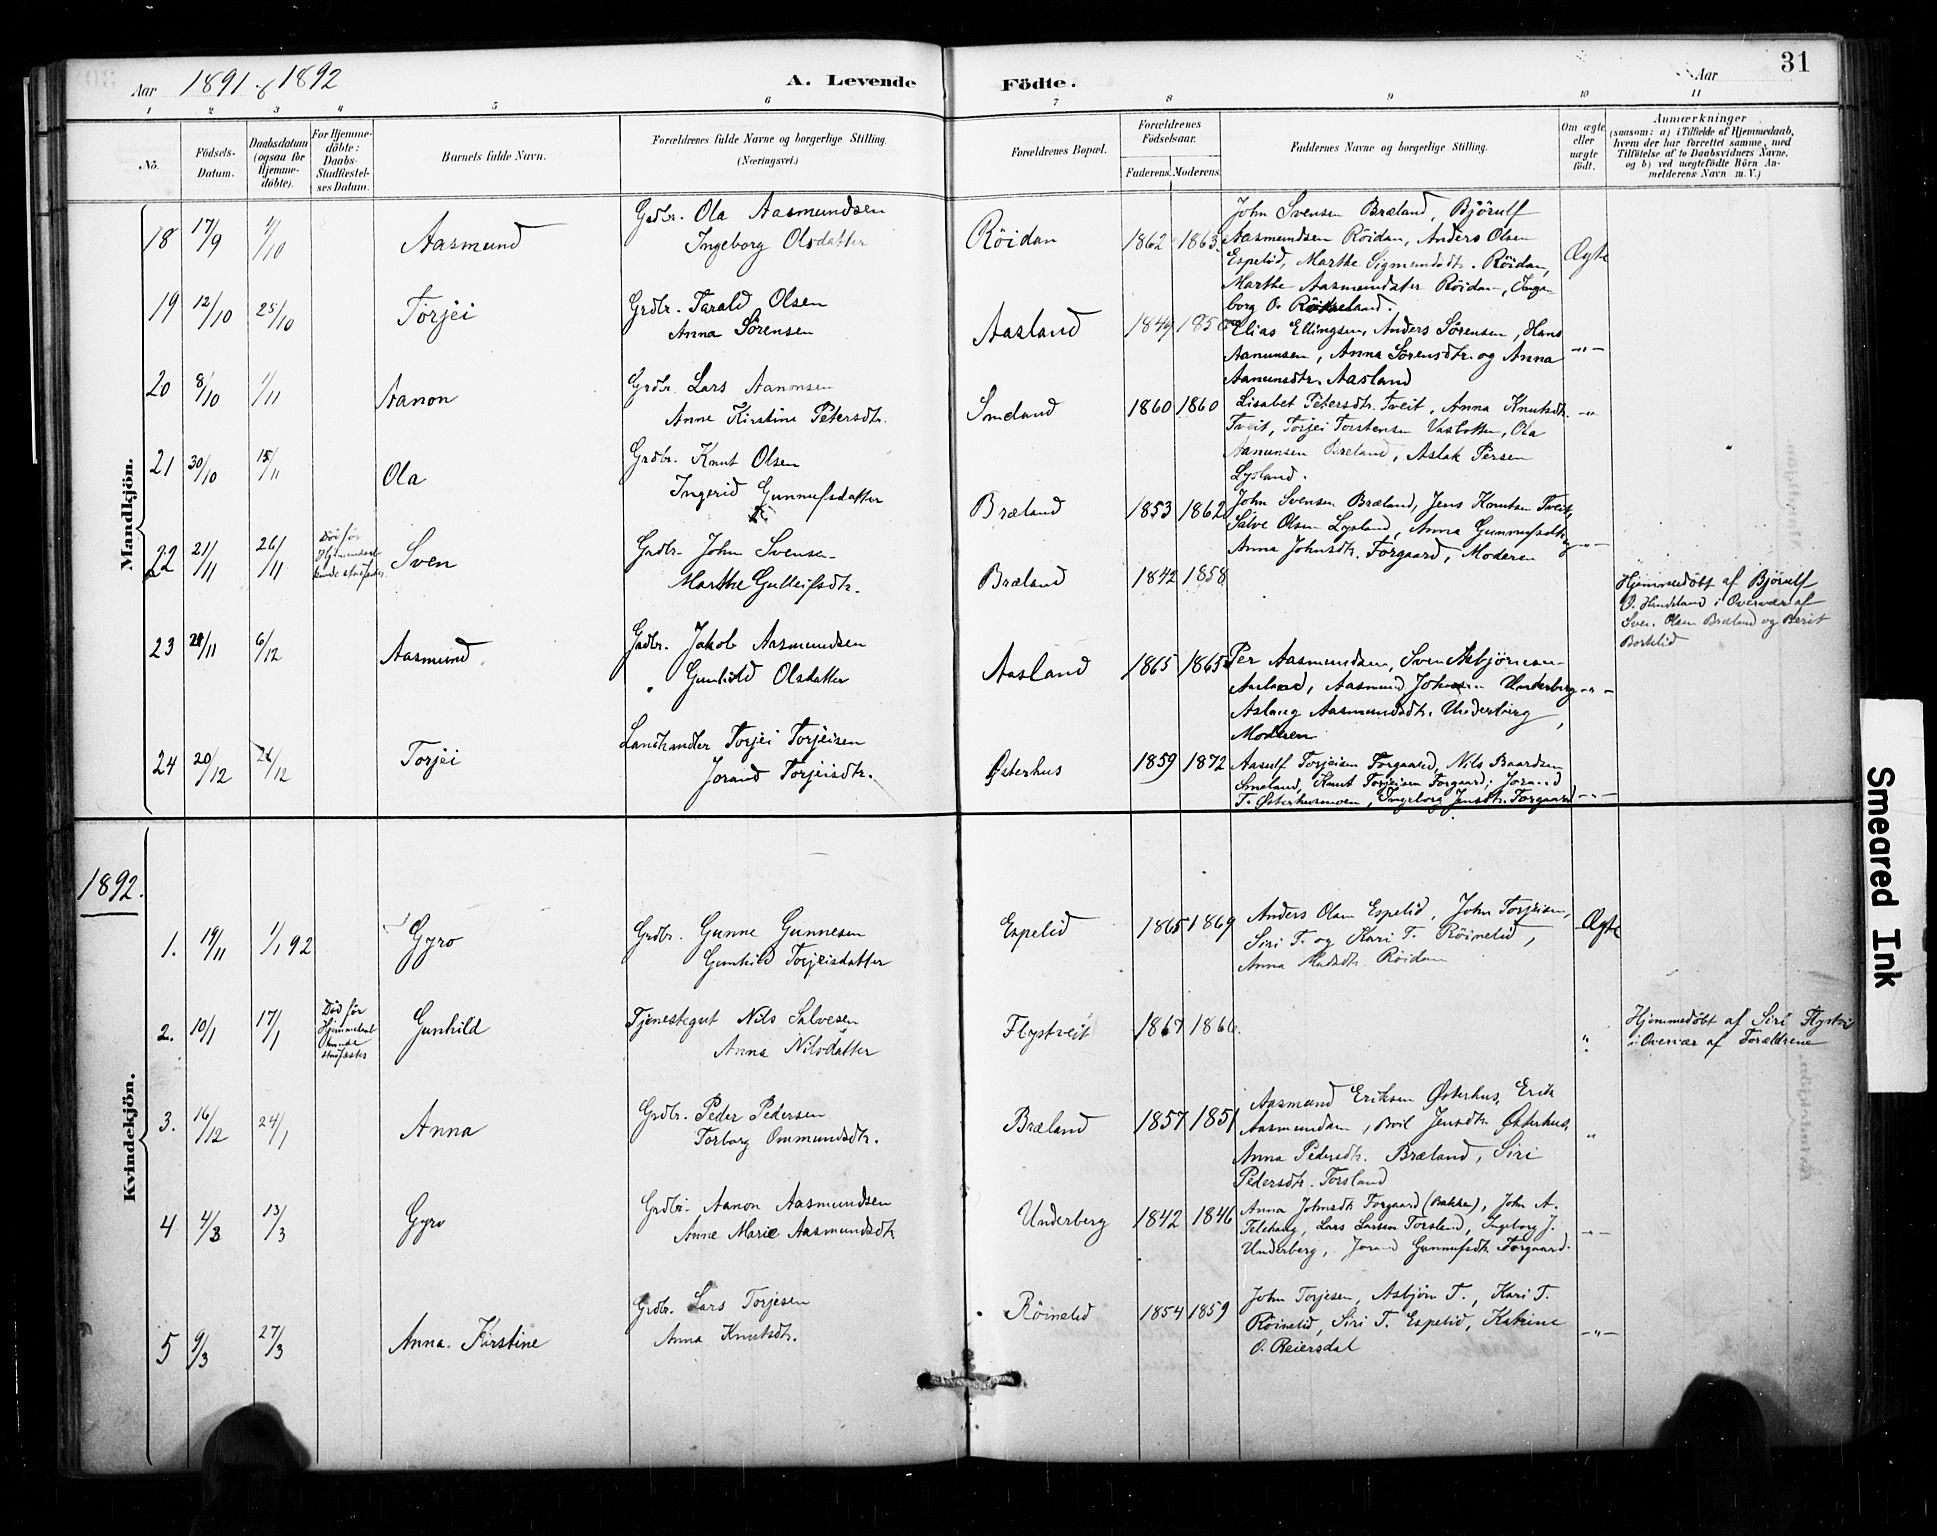 Aar 1891 & 1892 A. Levende Födte. Aar 31
1 2 3 4 5 6 7 8 9 10 11
No.
Födsels-
Datum.
Daabsdatum
(ogsaa for
Hjemme-
döbte).
For Hjemme-
döbte:
Daabs-
Stadfæstel-
ses Datum.
Barnets fulde Navn.
Forældrenes fulde Navne og borgerlige Stilling.
(Næringsvei.)
Forældrenes Bopæl.
Forældrenes
Födselsaar.
Faderens. Moderens.
Faddernes Navne og borgerlige Stilling.
Om ægte
eller
uægte
født.
Anmærkninger
(saasom: a) i Tilfælde af Hjemmedaab,
hvem der har forrettet samme, med
Tilföielse af to Daabsvidners Navne,
og b) ved uægtefödte Börn An-
melderens Navn m. V.)
Mandkjön.
18 17/9 4/10 Aasmund
Grdbr. Ola Aasmundsen
Ingeborg Olsdatter
Röidan 1862 1863
John Svensen Bræland, Björulf
Aasmundsen Röidan, Anders Olsen
Espelid, Marthe Sigmundsdtr. Röidan,
Marthe Aasmundsdater Röidan, Inge-
borg O.
Ægte
19 12/10 25/10 Torjei
Grdbr. Tarald Olsen
Anna Sörensen
Aasland 1849 1850
Elias Ellingsen, Anders Sörensen, Hans
Aanunsen, Anna Sörensdtr. og Anna
Aanunsdtr. Aasland
-"-
20 8/10 1/11 Aanon
Grdbr. Lars Aanonsen
Anne Kirstine Petersdtr.
Smeland 1860 1860
Lisabet Petersdtr. Tveit, Anna Knutsdtr.
Tveit, Torjei Torstensen Vasbotten, Ola
Aanunsen Bræland, Aslak Persen
Lysland.
-"-
21 30/10 15/11 Ola
Grdbr. Knut Olsen
Ingerid Gunnufsdatter
Bræland 1853 1862
John Svensen Bræland, Jens Knutsen Tveit,
Salve Olsen Lysland, Anna Gunnufsdtr. og
Anna Johnsdtr. Forgaard, Moderen
-"-
22 21/11 26/11
Död för
Hjemmedaab
kunde stadfæstes
Sven
Grdbr. John Svensen
Marthe Gulleifsdtr.
Bræland 1842 1858
Hjemmedöbt af Björulf
O. Handeland i Overvær af
Sven Olsen Bræland og Berit
Borkelid
23 28/11 6/12 Aasmund
Grdbr. Jakob Aasmundsen
" Gunhild Olsdatter
Aasland 1865 1865
Per Aasmundsen, Sven Asbjörnsen
Aasland, Aasmund Johnsen Underberg
Aslaug Aasmundsdtr. Underberg,
Moderen
-"-
24 20/12 26/12 Torjei
Landhandler Torjei Torjeisen
Jorand Torjeisdtr.
Østerhus 1859 1872
Aasulf Torjeisen Forgaard, Nils Baardsen
Smeland, Knut Torjeisen Forgaard, Jorand
T. Østerhusmoen, Ingeborg Jensdtr. Forgaard
-"-
1892.
Kvindekjön.
1. 19/11 1/1 92 Gyro
Grdbr. Gunne Gunnesen
Gunhild Torjeisdatter
Espelid 1865 1869
Anders Olsen Espelid, John Torjeisen,
Siri T. og Kari T. Röinelid,
Anna Madsdtr. Röidan
Ægte
2. 10/1 17/1
Död før
Hjemmedaab
kunde
stadfæstes
Gunhild
Tjenestegut Nils Salvesen
Anna Nilsdatter
Flystveit 1867 1866.
"
Hjemmedöbt af Siri Flystv
i Overvær af Forældrene
3. 16/12 24/1 Anna
Grdbr. Peder Pedersen
Torborg Ommundsdtr.
Bræland 1857 1851
Aasmund Eriksen Østerhus, Erik
Aasmundsen, Boil Jensdtr. Østerhus,
Anna Pedersdtr. Bræland, Siri
Pedersdtr. Torsland
"
4 4/3 13/3 Gyro
Grdbr. Aanon Aasmundsen
Anne Marie Aasmundsdtr.
Underberg 1842 1846
Anna Johnsdtr. Forgaard (Bakken), John A.
Telehaug, Lars Larsen Torsland, Ingeborg J.
Underberg, Jorand Gunnufsdtr. Forgaard.
-"-
5 9/3 27/3 Anna Kirstine
Grdbr. Lars Torjesen
Anna Knutsdtr.
Röinelid 1854 1859
John Torjesen, Asbjön T., Kari T.
Röinelid, Siri T. Espelid, Katrine
O. Reiersdal
-"-
Smeared Ink